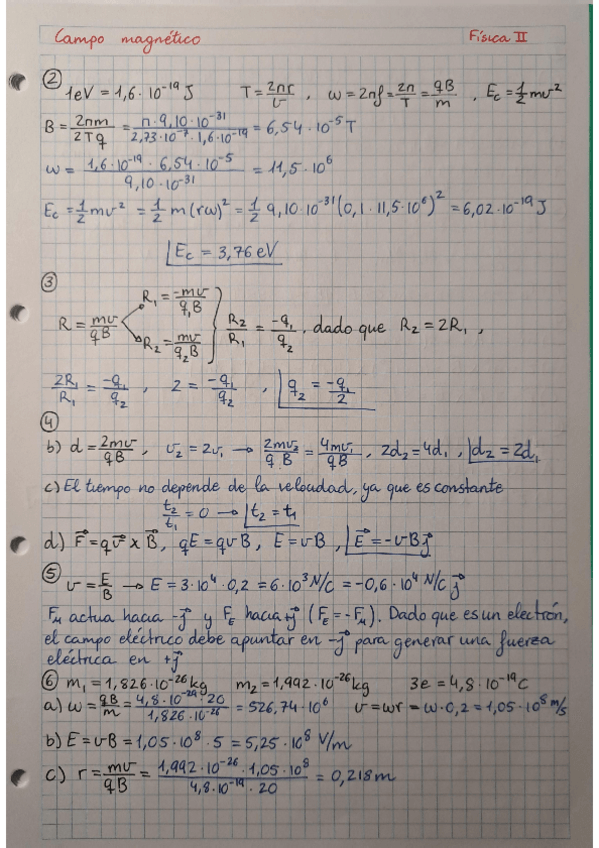 Campo magnético Física II
② 1eV = 1,6·10⁻¹⁹ J T = 2πr/v , ω = 2πf = 2π/T = qB/m , Ec = 1/2 mv²
B = 2πm/2Tq = π·9,10·10⁻³¹/2,73·10⁻⁷·1,6·10⁻¹⁹ = 6,54·10⁻⁵ T
ω = 1,6·10⁻¹⁹·6,54·10⁻⁵/9,10·10⁻³¹ = 11,5·10⁶
Ec = 1/2 mv² = 1/2 m(rω)² = 1/2 9,10·10⁻³¹(0,1·11,5·10⁶)² = 6,02·10⁻¹⁹ J
Ec = 3,76 eV
③
R = mv/qB R₁ = -mv/q₁B R₂ = mv/q₂B } R₂/R₁ = -q₁/q₂ . dado que R₂ = 2R₁ ,
2R₁/R₁ = -q₁/q₂ , 2 = -q₁/q₂ , q₂ = -q₁/2
④
b) d = 2mv/qB , v₂ = 2v₁ → 2mv₂/qB = 4mv₁/qB , 2d₂ = 4d₁ , d₂ = 2d₁
c) El tiempo no depende de la velocidad, ya que es constante
t₂/t₁ = 0 → t₂ = t₁
d) F⃗ = qv⃗ x B⃗ , qE = qvB , E = vB , E⃗ = -vB j⃗
⑤ v = E/B → E = 3·10⁴·0,2 = 6·10³ N/C = -0,6·10⁴ N/C j⃗
F_M actua hacia -j⃗ y F_E hacia +j⃗ (F_E = -F_M). Dado que es un electrón,
el campo eléctrico debe apuntar en -j⃗ para generar una fuerza
eléctrica en +j⃗
⑥ m₁ = 1,826·10⁻²⁶ kg m₂ = 1,992·10⁻²⁶ kg 3e = 4,8·10⁻¹⁹ C
a) ω = qB/m = 4,8·10⁻²⁹·20/1,826·10⁻²⁶ = 526,74·10⁶ v = ωr = ω·0,2 = 1,05·10⁸ m/s
b) E = vB = 1,05·10⁸·5 = 5,25·10⁸ V/m
c) r = mv/qB = 1,992·10⁻²⁶·1,05·10⁸/4,8·10⁻¹⁹·20 = 0,218 m